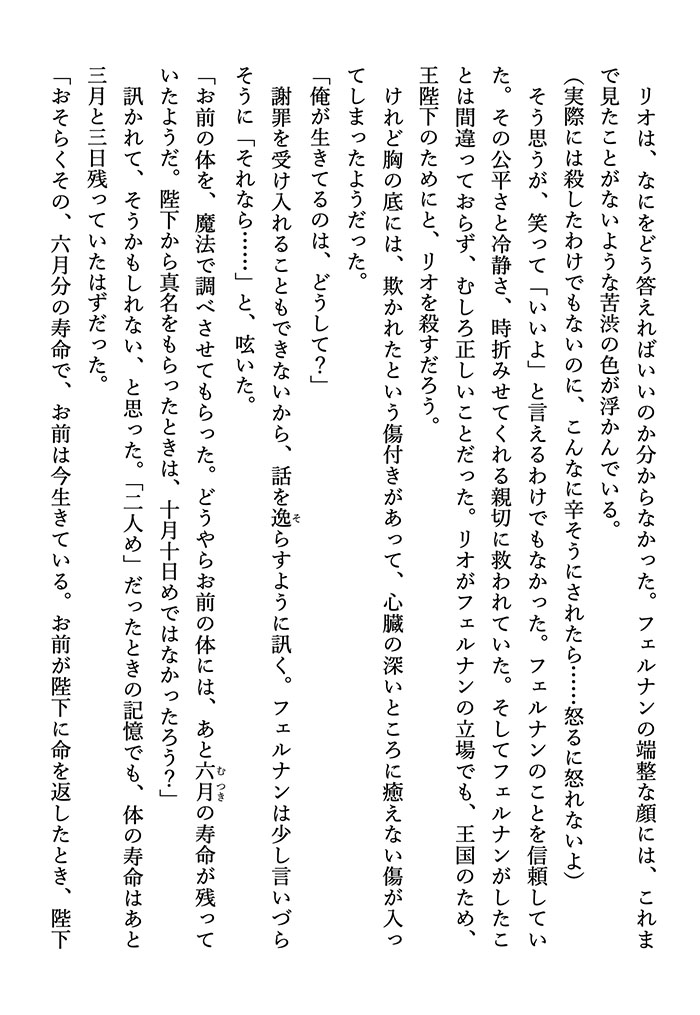 リオは、なにをどう答えればいいのか分からなかった。フェルナンの端整な顔には、これま
で見たことがないような苦渋の色が浮かんでいる。
（実際には殺したわけでもないのに、こんなに辛そうにされたら……怒るに怒れないよ）
　そう思うが、笑って「いいよ」と言えるわけでもなかった。フェルナンのことを信頼してい
た。その公平さと冷静さ、時折みせてくれる親切に救われていた。そしてフェルナンがしたこ
とは間違っておらず、むしろ正しいことだった。リオがフェルナンの立場でも、王国のため、
王陛下のためにと、リオを殺すだろう。
　けれど胸の底には、欺かれたという傷付きがあって、心臓の深いところに癒えない傷が入っ
てしまったようだった。
「俺が生きてるのは、どうして？」
　謝罪を受け入れることもできないから、話を逸そらすように訊く。フェルナンは少し言いづら
そうに「それなら……」と、呟いた。
「お前の体を、魔法で調べさせてもらった。どうやらお前の体には、あと六月むつきの寿命が残って
いたようだ。陛下から真名をもらったときは、十月十日めではなかったろう？」
　訊かれて、そうかもしれない、と思った。「二人め」だったときの記憶でも、体の寿命はあと
三月と三日残っていたはずだった。
「おそらくその、六月分の寿命で、お前は今生きている。お前が陛下に命を返したとき、陛下